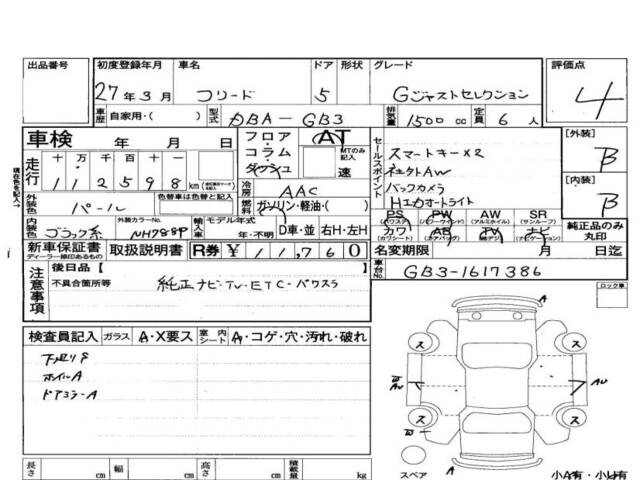 出品番号 初度登録年月 車名 ドア 形状 グレード 評価点
27年3月 フリード 5 Gジャストセレクション 4
車歴 自家用・( ) 型式 DBA-GB3 排気量 1500 cc 定員 6 人
車検 年 月 日 フロア AT セールスポイント [外装]
コラム MTのみ記入 スマートキー×2 B
走行 十 万 千 百 十 ダッシュ 速
112598 km 冷房 AAC バックカメラ [内装]
外装色 パール 色替車は色替と記入 燃料 ガソリン・軽油・( ) HIDオートライト B
内装色 ブラック系 外装カラーNo. NH788P 輸入車 モデル年式 年・不明 D車・並 右H・左H
PS PW AW SR 純正品のみ丸印
(パワステ) (パワーウインド) (アルミホイル) (サンルーフ)
カワ AB TV ナビ
(カワシート) (エアバッグ) (ナビゲーション)
新車保証書 取扱説明書 R券 ¥11,760 名変期限 月 日迄
ディーラー捺印あるもの
現在色を記入→
注意事項 後日品( ) 車台No. GB3-1617386
不具合箇所等 純正ナビ・TV・ETC・パワスラ
ロック車
検査員記入 ガラス A・X要ス 室内シート A・コゲ・穴・汚れ・破れ
下廻りS
ホイルA
ドアミラーA
A
ス ス
AU
ス ス
スペア A 小A有・小U有
長さ cm 幅 cm 高さ cm 積載量 kg